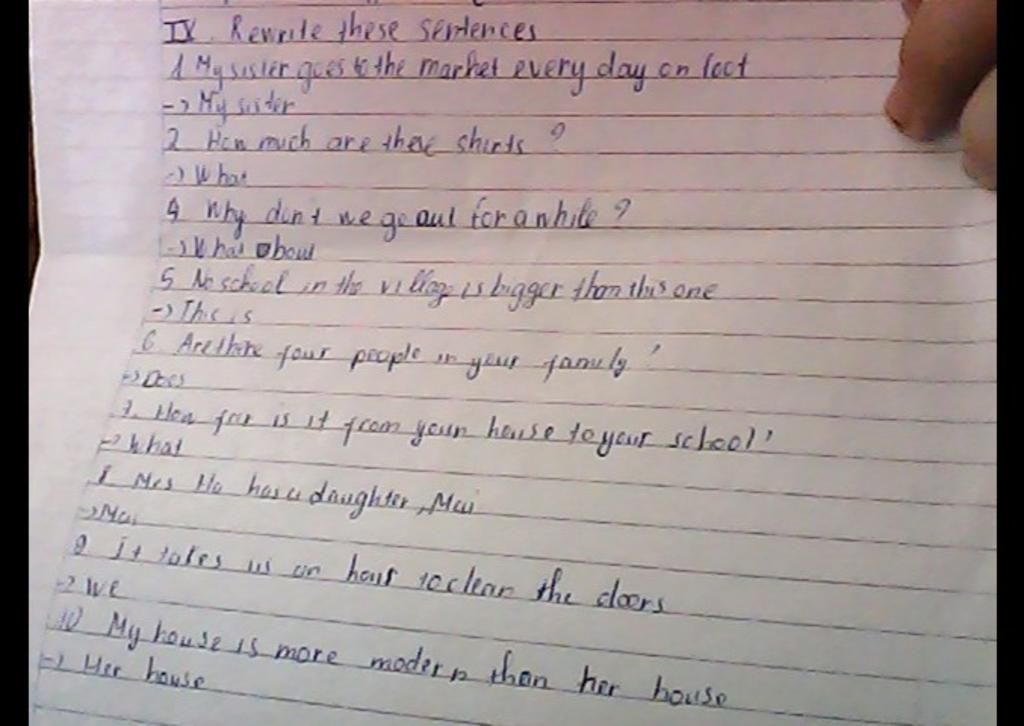 IV. Rewrite these sentences
1 My sister goes to the market every day on foot
-> My sister
2 How much are these shirts ?
-> What
4 Why don't we go out for a while ?
-> What about
5 No school in the village is bigger than this one
-> This is
6 Are there four people in your family ?
-> Does
7. How far is it from your house to your school ?
-> What
8 Mrs Ha has a daughter, Mai
-> Mai
9 It takes us an hour to clean the doors
-> We
10 My house is more modern than her house
-> Her house